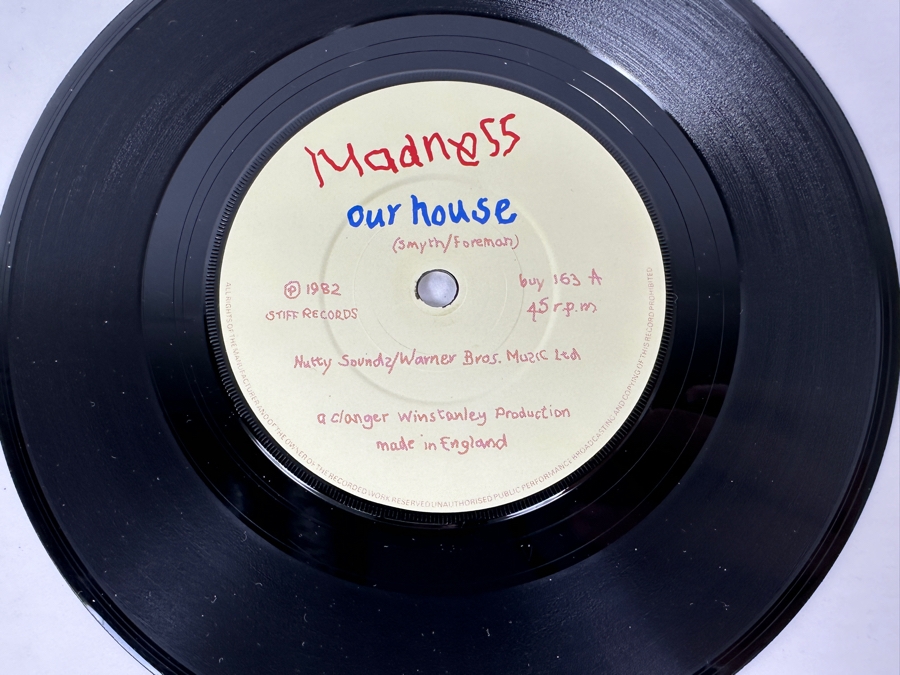 Madness
our house
(Smyth/Foreman)
℗ 1982
STIFF RECORDS
buy 163 A
45 r.p.m
Nutty Soundz/Warner Bros. Muzic Ltd
a clanger Winstanley Production
made in England
ALL RIGHTS OF THE MANUFACTURER AND OF THE OWNER OF THE RECORDED WORK RESERVED UNAUTHORISED PUBLIC PERFORMANCE BROADCASTING AND COPYING OF THIS RECORD PROHIBITED